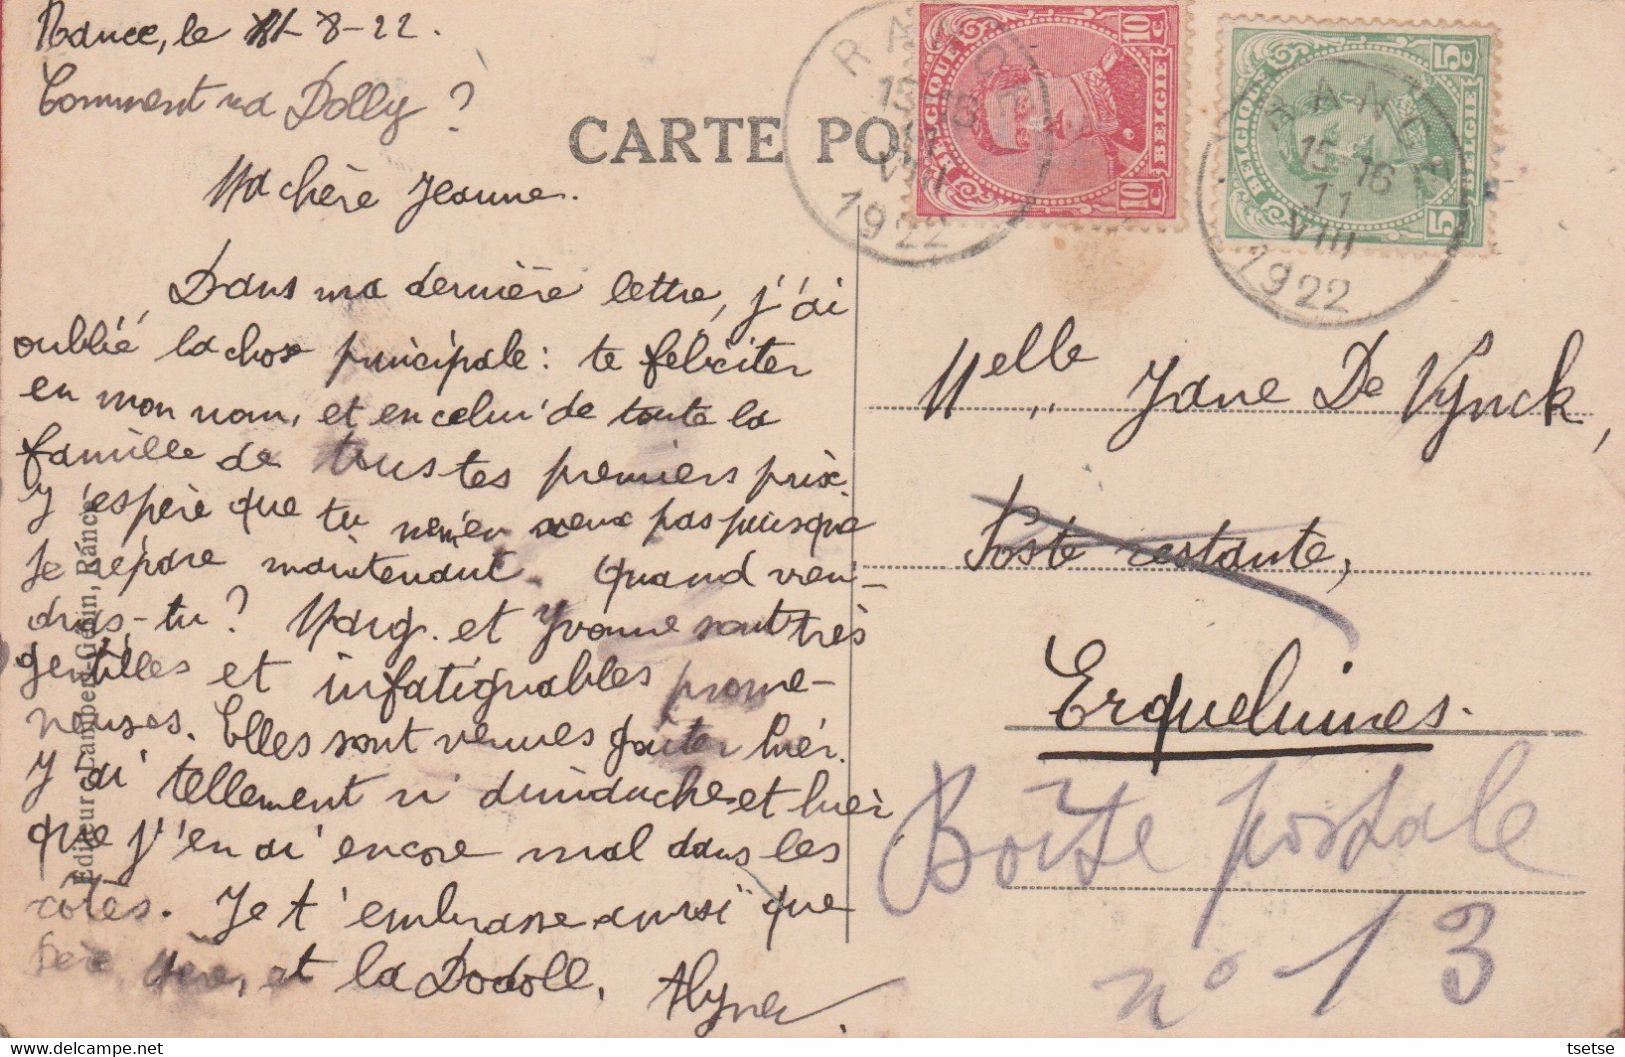 Rance, le 11-8-22.
Comment va Dolly ?
CARTE PO
Ma chère Jeanne.
Dans ma dernière lettre, j'ai
oublié la chose principale : te féliciter
en mon nom, et en celui de toute la
famille de tous tes premiers prix.
J'espère que tu m'en veux pas puisque
je répare maintenant. Quand vien-
dras-tu ? Marg. et Yvonne sont très
gentilles et infatiguables prome-
neuses. Elles sont venues goûter hier.
J'ai tellement ri dimanche et hier
que j'en ai encore mal dans les
côtes. Je t'embrasse ainsi que
Père, Mère, et la Dodoll.
Alyne.
Editeur Lambert-Gobin, Rance
RANCE
15-16
11
VIII
1922
10c BELGIQUE BELGIE 10c
RANCE
15-16
11
VIII
1922
5c BELGIQUE BELGIE 5c
Melle Jane De Vynck,
Poste restante,
Erquelinnes.
Boîte postale
n° 13
tsetse
www.delcampe.net